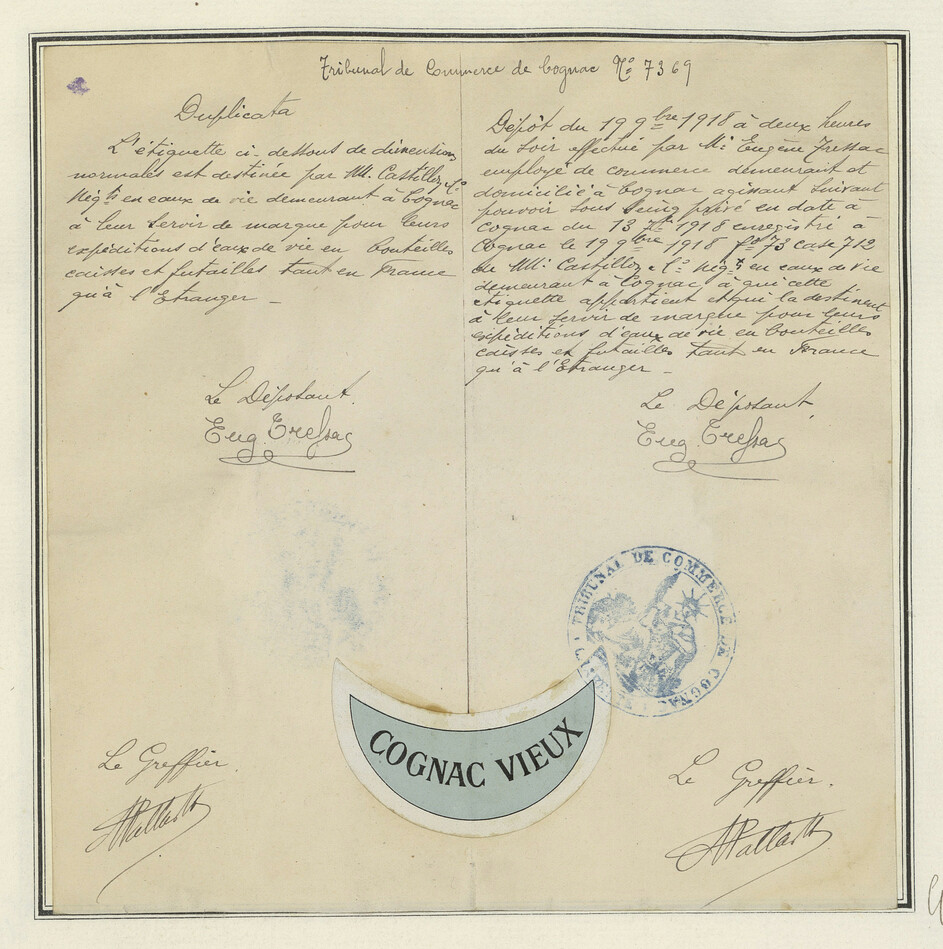 Tribunal de Commerce de Cognac No 7369
Duplicata
L'étiquette ci-dessous de dimensions
normales est destinée par MM. Castillon & Co
Négts en eaux de vie demeurant à Cognac
à leur servir de marque pour leurs
expéditions d'eaux de vie en bouteilles
caisses et futailles tant en France
qu'à l'Etranger _
Le Déposant.
Eug. Tressac
Le Greffier.
Dépôt du 19 9bre 1918 à deux heures
du soir effectué par Mr Eugène Tressac
employé de commerce demeurant et
domicilié à Cognac agissant suivant
pouvoir sous seing privé en date à
Cognac du 13 1918 enregistré à
Cognac le 19 9bre 1918 fo 73 case 712
de MM. Castillon & Co Négts en eaux de vie
demeurant à Cognac à qui cette
étiquette appartient et qui la destinent
à leur servir de marque pour leurs
expéditions d'eaux de vie en bouteilles
caisses et futailles tant en France
qu'à l'Etranger _
Le Déposant,
Eug. Tressac
TRIBUNAL DE COMMERCE DE COGNAC
Le Greffier.
COGNAC VIEUX